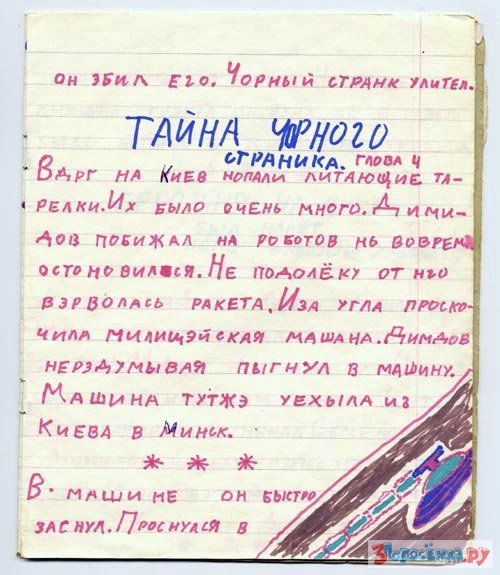 он збил его. Чорный странк улител.
ТАЙНА ЧОРНОГО
СТРАНИКА. ГЛОВА 4
Вдрг на Киев нопали литающие та-
релки. Их было очень много. Дими-
дов побижал на роботов нь воврем
остоновился. Не подолёку от нго
взрволась ракета. Иза угла проско-
чила милицэйская машана. Димдов
нерздумывая пыгнул в машину.
Машина тутжэ уехыла из
Киева в Минск.
* * *
В. машине он быстро
заснул. Проснулся в
3Поросёнка.ру